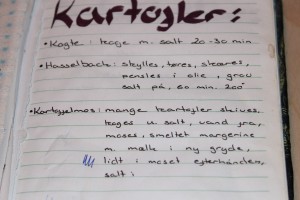 Kartofler:
• Kogte: koge m. salt 20-30 min
• Hasselback: skylles, tøres, skæres,
pensles i olie, grov
salt på, 60 min. 200°
• Kartoffelmos: mange kartofler skives,
koges u. salt, vand fra,
moses, smeltet margerine
m. mælk i ny gryde,
lidt i moset efterhånden,
salt: